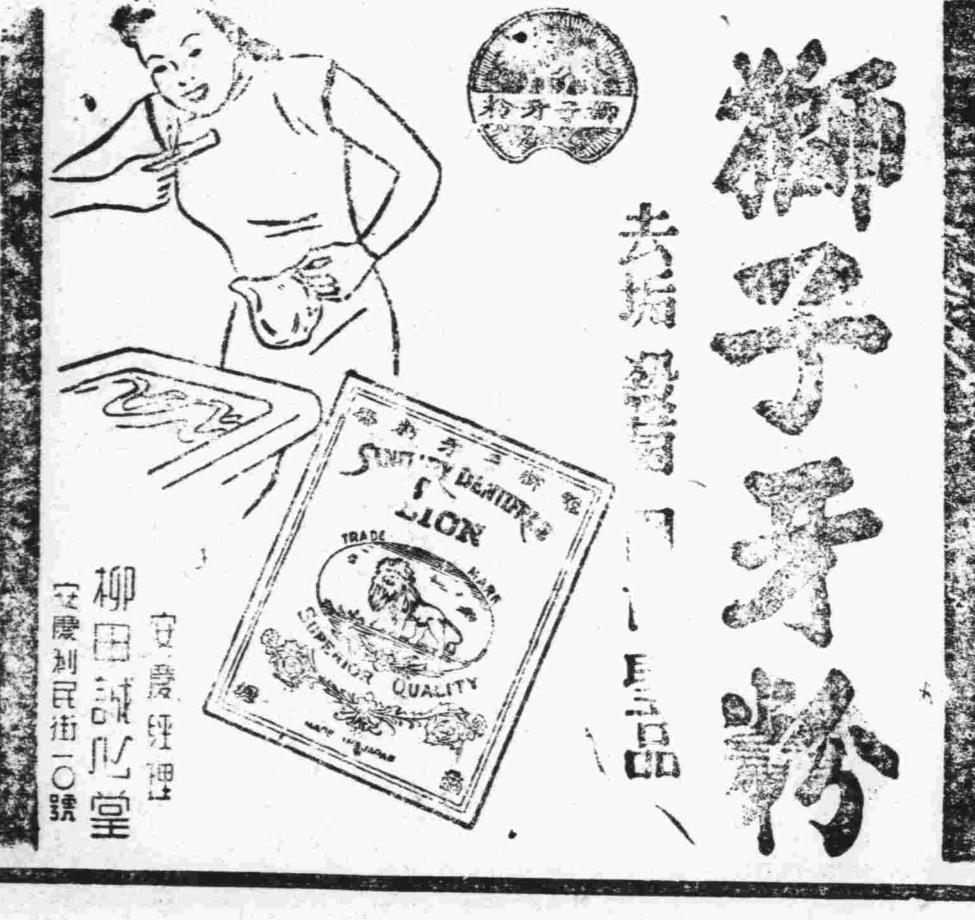 獅子牙粉
去垢殺菌
聖品
獅子牙粉
獅子牙粉
SANITARY DENTIFRICE
LION
TRADE MARK
SUPERIOR QUALITY
MADE IN JAPAN
安慶經理
柳田誠心堂
安慶利民街一〇號